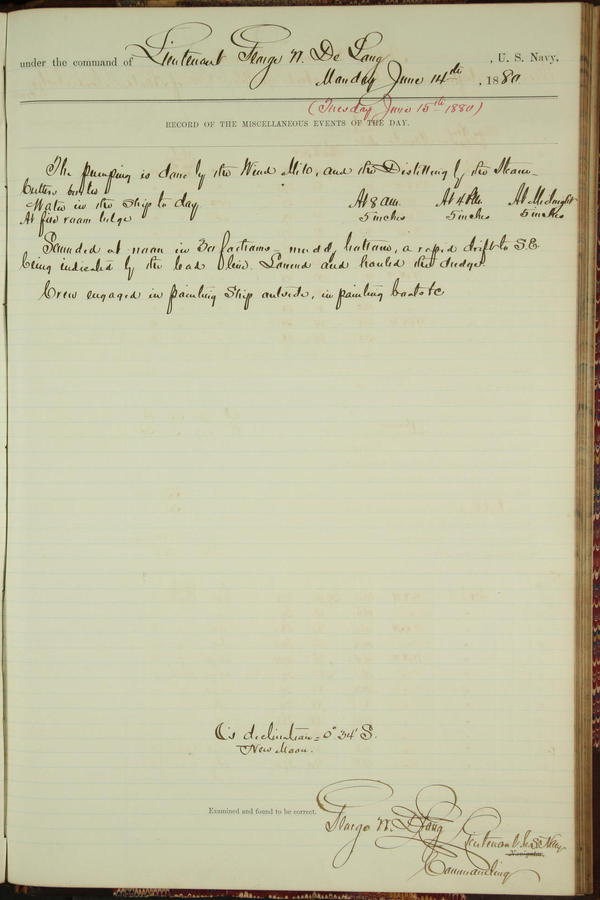 under the command of Lieutenant George W. De Long , U. S. Navy,
Monday June 14th , 1880
(Tuesday June 15th 1880)
RECORD OF THE MISCELLANEOUS EVENTS OF THE DAY.
The pumping is done by the Wind Mill, and the Distilling by the Steam
Cutters boiler
Water in the Ship to day At 8 a.m. At 4 P.M. At Midnight
At fire room bilge 5 inches 5 inches 5 inches
Sounded at noon in 30 fathoms - mud, bottom, a rapid drift to S.E.
being indicated by the lead line. Lowered and hauled the dredge.
Crew engaged in painting Ship outside, in painting boats &c
☾'s declination = 0° 34' S.
New Moon.
Examined and found to be correct.
George W. De Long Lieutenant U.S. Navy
Navigator.
Commanding